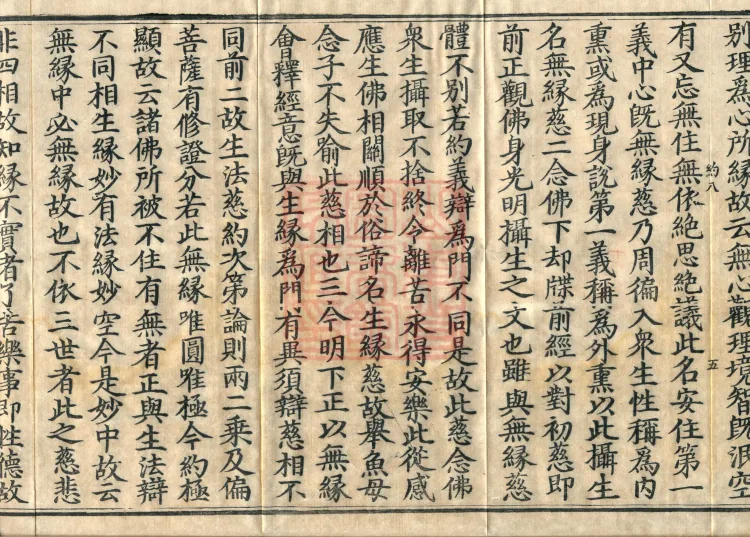 別理爲心所緣故云無心觀理境智旣泯空
約八 五
有又忘無住無依絶思絶議此名安住第一
義中心旣無緣慈乃周徧入衆生性稱爲内
熏或爲現身說第一義稱爲外熏以此攝生
名無緣慈二念佛下却牒前經以對初慈即
前正觀佛身光明攝生之文也雖與無緣慈
體不別若約義辯爲門不同是故此慈念佛
衆生攝取不捨終令離苦永得安樂此從感
應生佛相關順於俗諦名生緣慈故舉魚母
念子不失喻此慈相也三今明下正以無緣
會釋經意旣與生緣爲門有異須辯慈相不
同前二故生法慈約次第論則兩二乗及偏
菩薩有修證分若此無緣唯圓唯極今約極
顯故云諸佛所被不住有無者正與生法辯
不同相生緣妙有法緣妙空今是妙中故云
無緣中必無緣故也不依三世者此之慈悲
非四相故知緣不實者了苦樂事即性德故